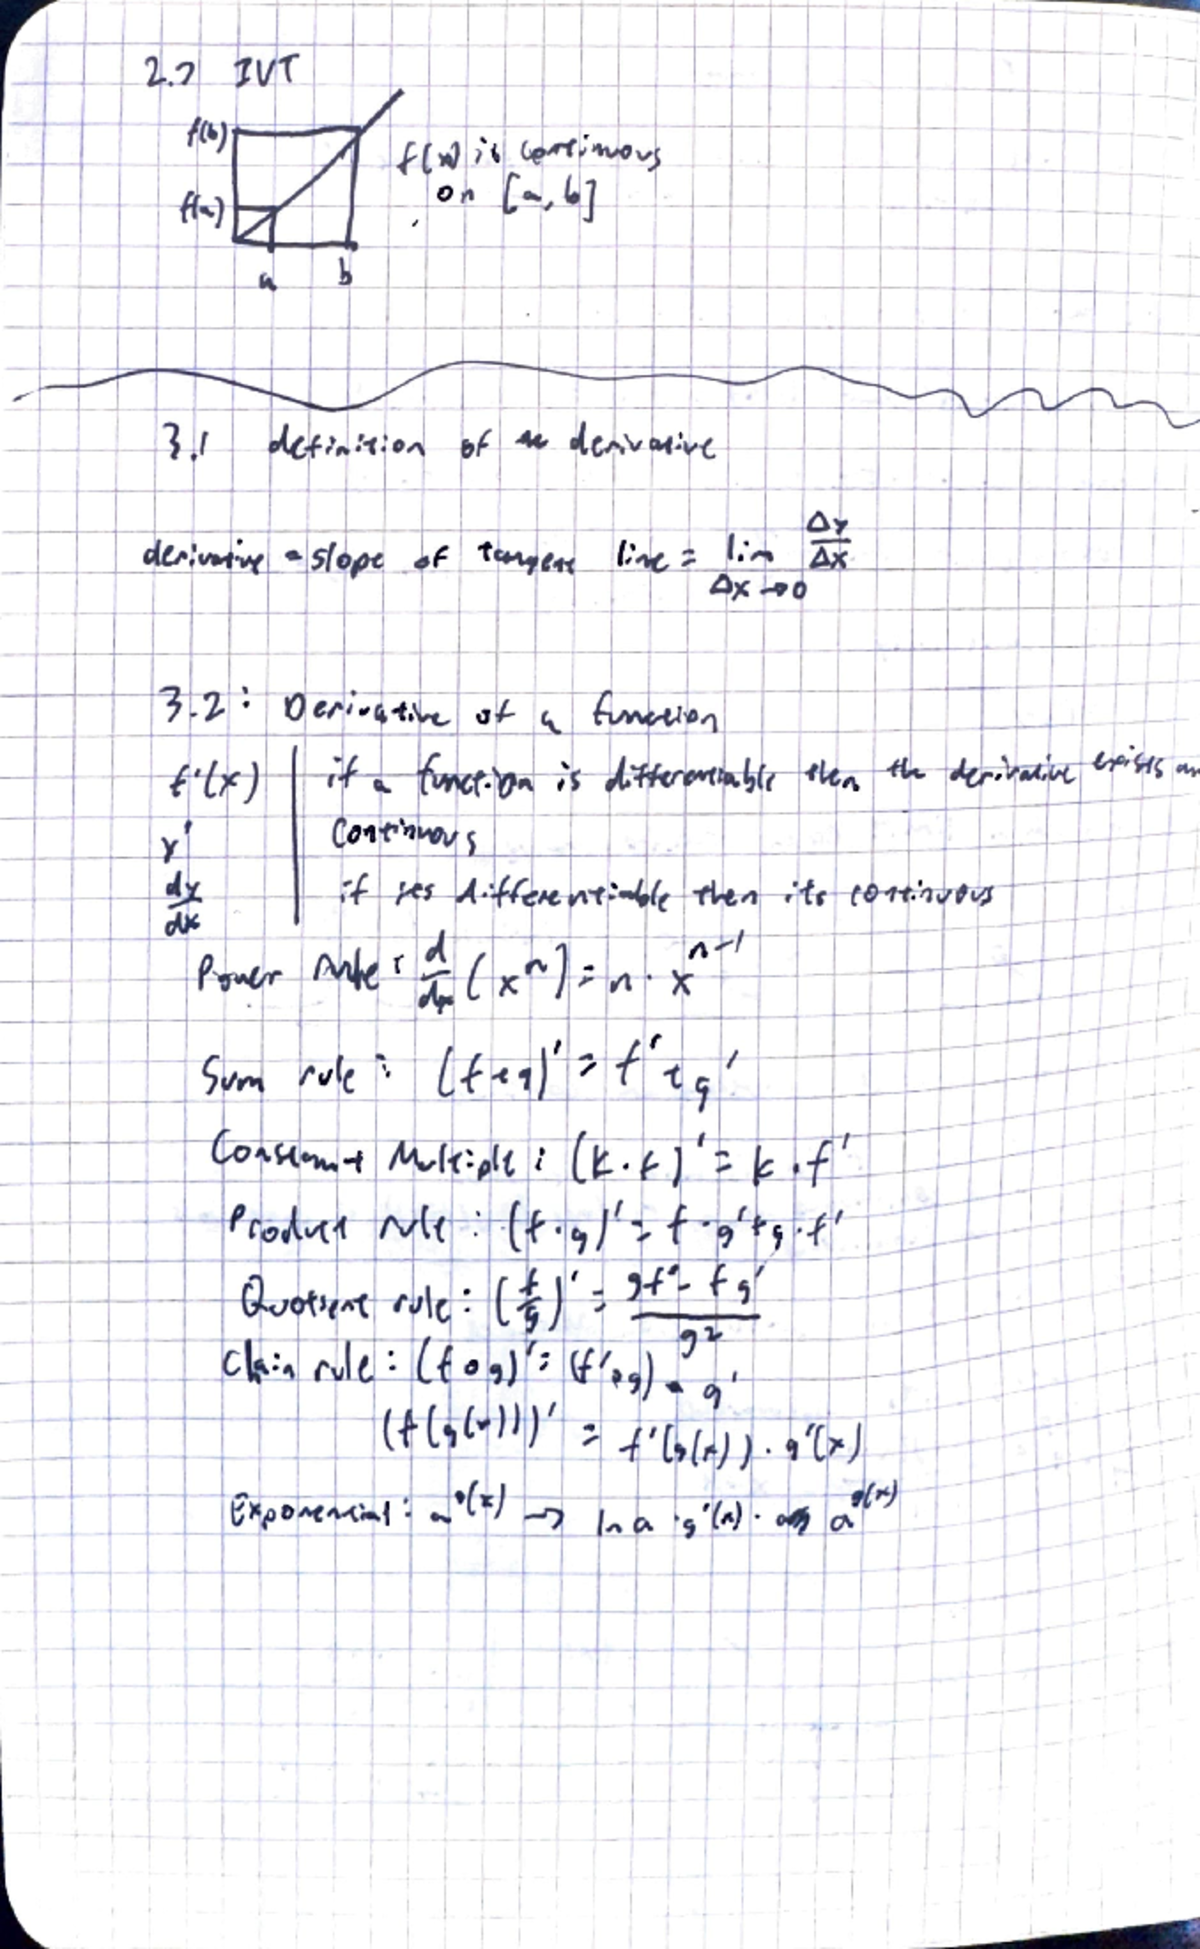 2.7 IVT
f(b)
f(a)
a b
f(x) is continuous
on [a, b]
3.1 definition of derivative
derivative = slope of tangent line = lim Δx→0 Δy/Δx
3.2: Derivative of a function
f'(x) if a function is differentiable then the derivative exists an
y' continuous
dy/dx if its differentiable then its continuous
Power rule: d/dx (x^n) = n · x^(n-1)
Sum rule: (f+g)' = f' + g'
Constant Multiple: (k·f)' = k·f'
Product rule: (f·g)' = f·g'+g·f'
Quotient rule: (f/g)' = (gf' - fg')/g²
Chain rule: (f∘g)' = (f'∘g) · g'
(f(g(x)))' = f'(g(x)) · g'(x)
Exponential: a^g(x) → ln a · g'(x) · a^g(x)